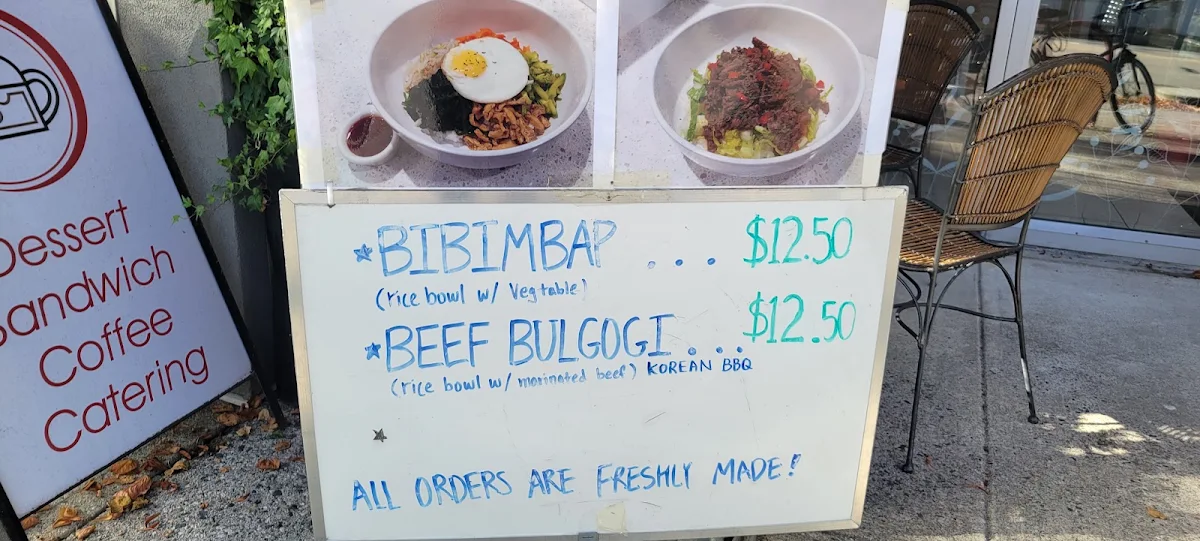 Dessert
Sandwich
Coffee
Catering
BIBIMBAP ... $12.50
(rice bowl w/ Vegtable)
BEEF BULGOGI ... $12.50
(rice bowl w/ marinated beef) KOREAN BBQ
ALL ORDERS ARE FRESHLY MADE!